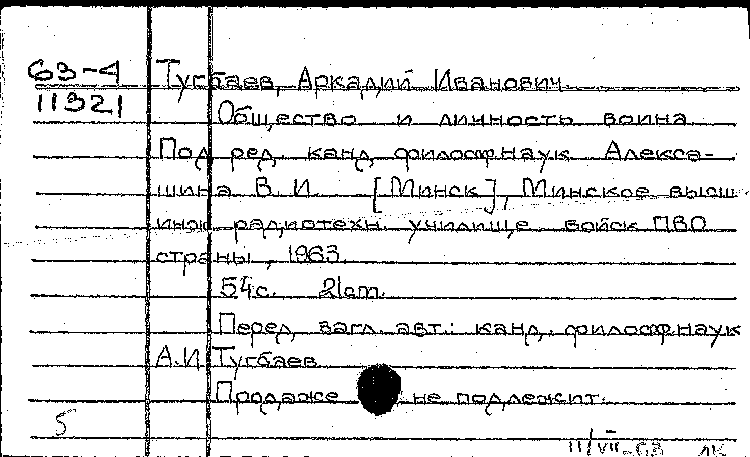 63-4 Тугбаев, Аркадий Иванович.
11321
Общество и личность воина.
Под ред. канд. философ. наук Алекса-
шина В.И. [Минск], Минское высш.
инж. радиотехн. училище войск ПВО
страны, 1963.
54с. 21cm.
Перед загл. авт.: канд. философ. наук
А.И. Тугбаев
Продаже не подлежит.
5
11/VII-63 ЛК